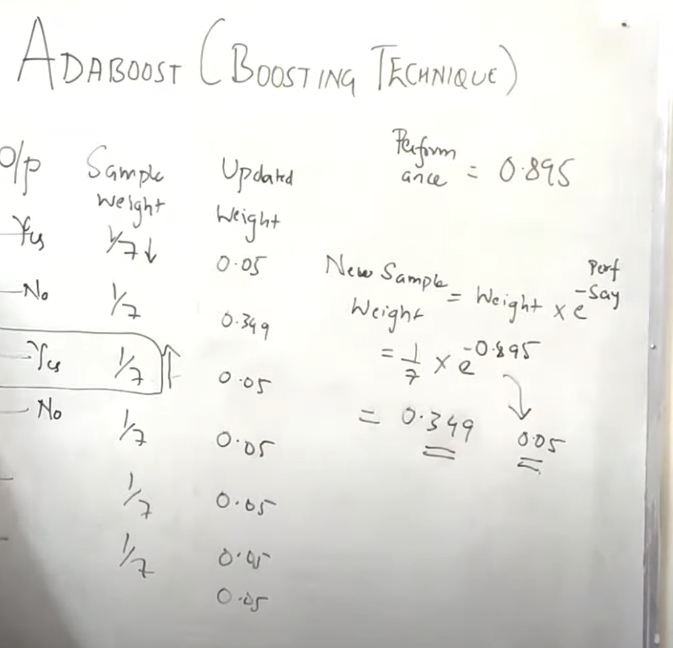 ADABOOST (BOOSTING TECHNIQUE)
O/p Sample Weight Updated Weight
Yes 1/7 ↓ 0.05
No 1/7 0.349
Yes 1/7 ↑ 0.05
No 1/7 0.05
1/7 0.05
1/7 0.05
0.05
Performance = 0.895
New Sample Weight = Weight × e^-Perf Say
= 1/7 × e^-0.895
= 0.349 0.05